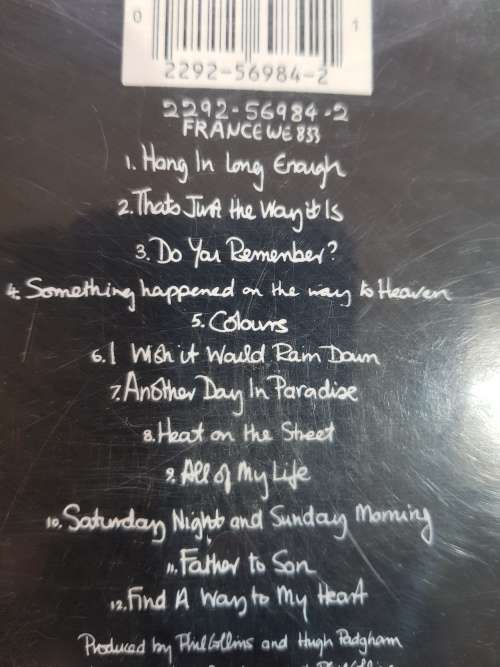 0 1
2292-56984-2
2292-56984-2
FRANCE WE 833
1. Hang In Long Enough
2. Thats Just the Way it Is
3. Do You Remember?
4. Something happened on the way to Heaven
5. Colours
6. I Wish it Would Rain Down
7. Another Day In Paradise
8. Heat on the Street
9. All of My Life
10. Saturday Night and Sunday Morning
11. Father to Son
12. Find A Way to My Heart
Produced by Phil Collins and Hugh Padgham